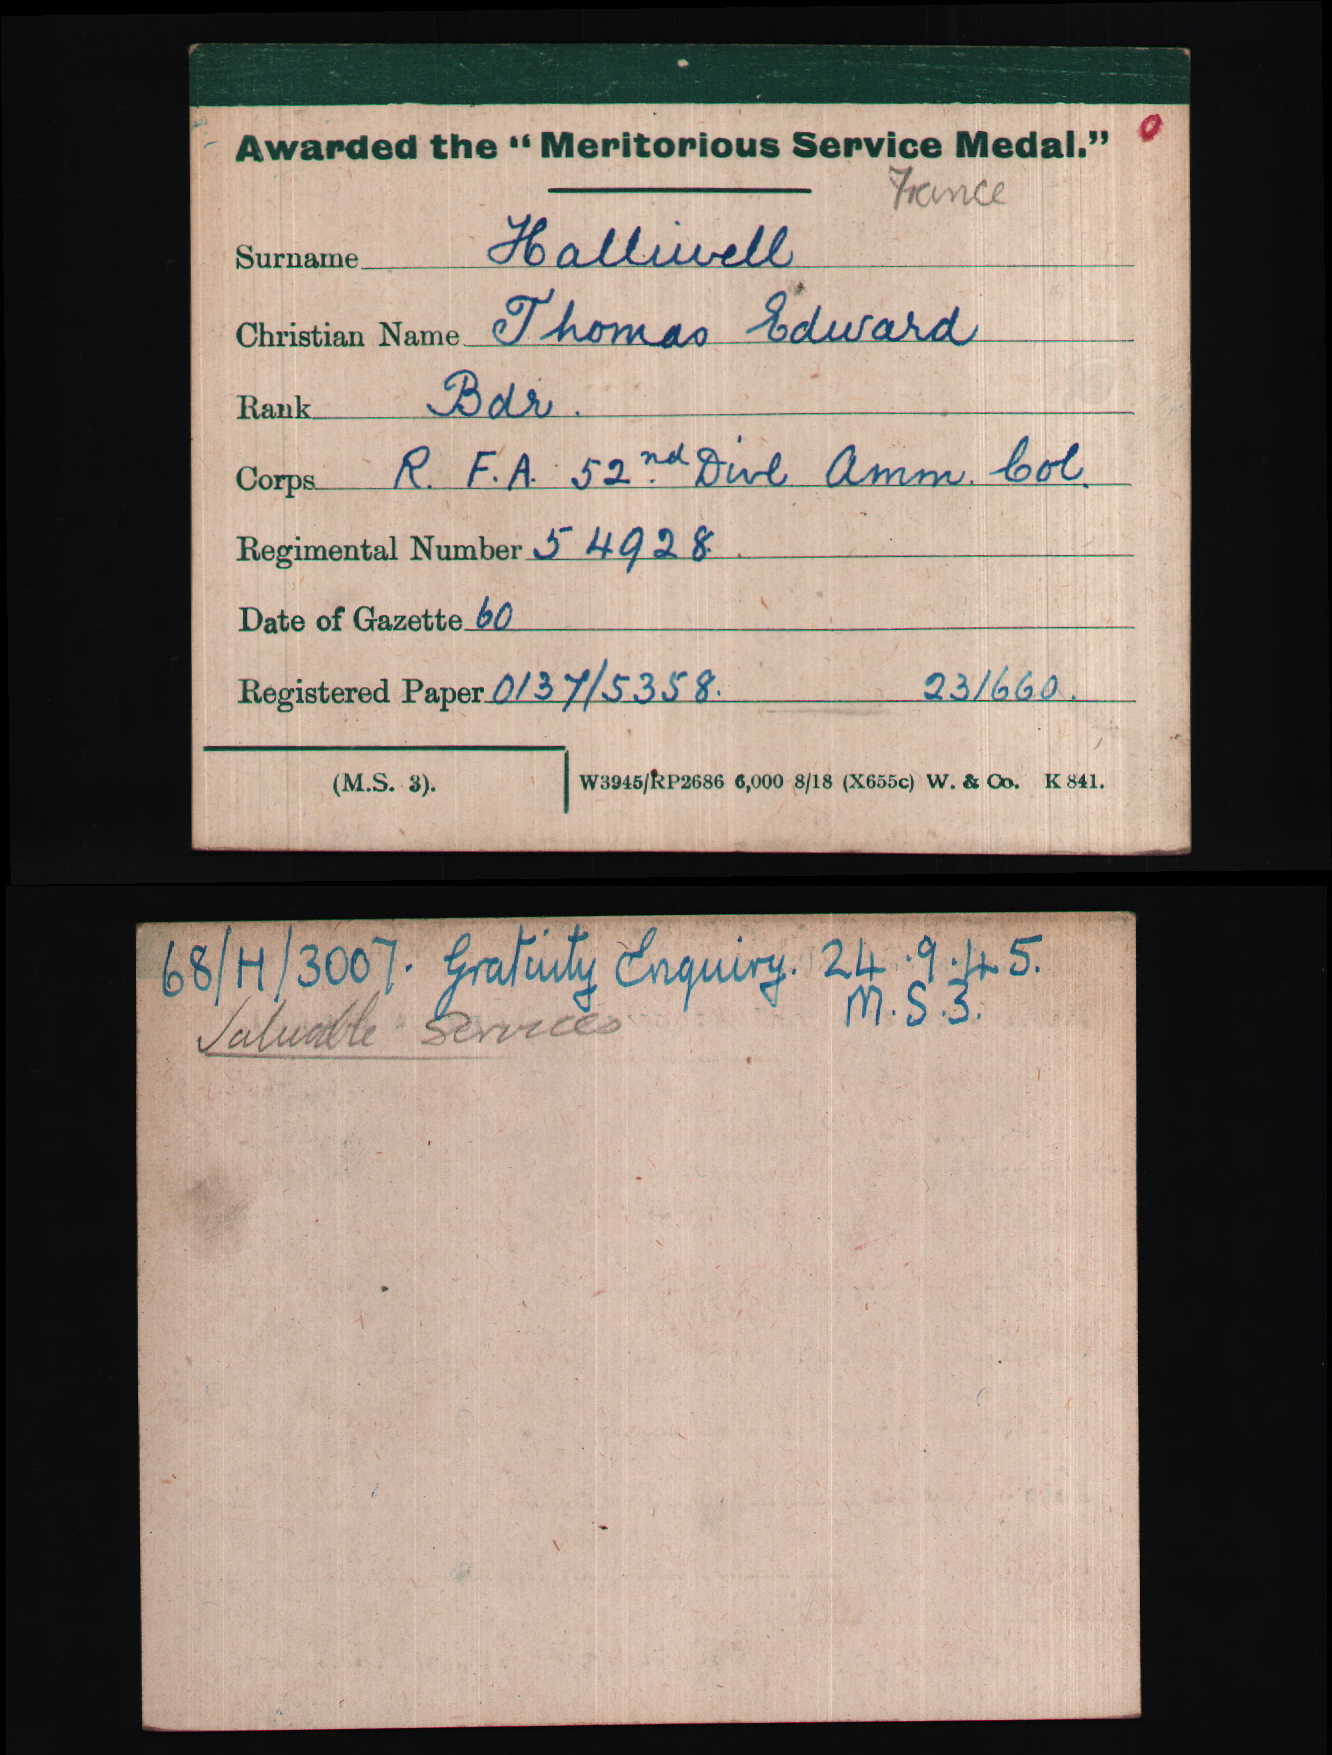 Awarded the “Meritorious Service Medal.”
France
Surname Halliwell
Christian Name Thomas Edward
Rank Bdr.
Corps R. F.A. 52nd Divl Amm. Col.
Regimental Number 54928.
Date of Gazette 60
Registered Paper 0137/5358. 23/660.
(M.S. 3).
W3945/RP2686 6,000 8/18 (X655c) W. & Co. K 841.
68/H/3007. Gratuity Enquiry. 24.9.45.
M.S.3.
Valuable Services